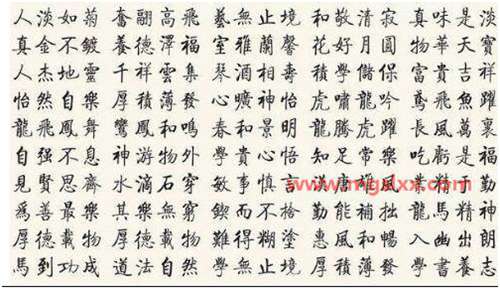 人淡如菊 奮翮高飛 藝無止境 和敬清寂 真味是淡
真金不鍍 養德澤福 室雅蘭馨 花好月圓 物華天寶
人杰地靈 千祥雲集 琴酒相壽 積學儲 富貴吉祥
怡然自樂 厚積薄發 心曠神怡 虎嘯龍吟 鳶飛魚躍
龍飛鳳舞 鸞鳳和鳴 春和景明 龍騰虎躍 長風萬裏
自强不息 神游物外 學貴心悟 知足常樂 吃虧是福
見賢思齊 水滴石穿 敏事慎言 唐雄風 業精于勤
爲善最樂 其樂無窮 鍥而不捨 勤能補拙 龍馬精神
厚德載物 厚德載物 難得糊塗 惠風和暢 入幽出朗
馬到功成 道法自然 學無止境 厚積薄發 學書養志
www.mgdxx.com